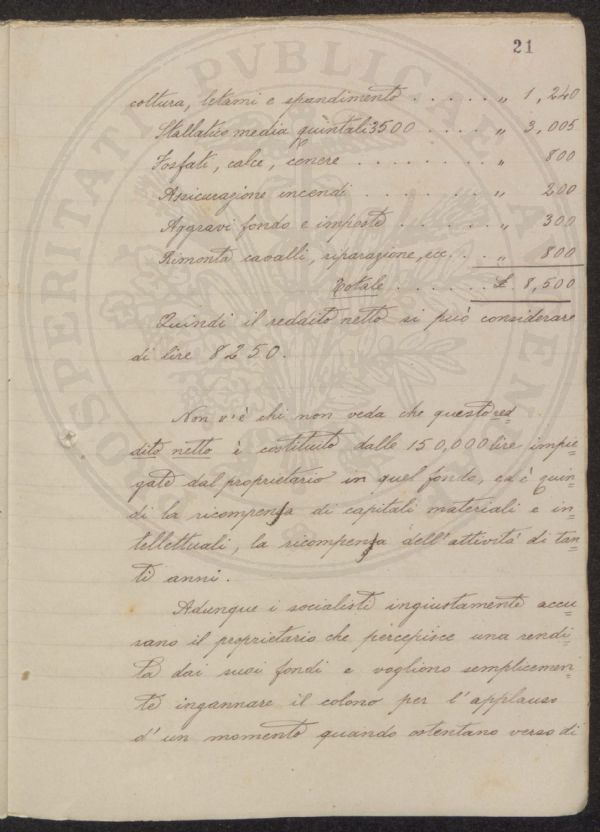 21
PROSPERITATI PVBLICAE AVGENDAE
coltura, letami e spandimento . . . . . „ 1,240
Stallatico media quintali 3500 . . . . „ 3,005
Fosfati, calce, cenere . . . . . . . . . „ 800
Assicurazione incendi . . . . . . . . „ 200
Aggravi fondo e imposte . . . . . . „ 300
Rimonta cavalli, riparazione, ecc. . . „ 800
Totale . . . . . . £ 8,500
Quindi il reddito netto si può considerare
di lire 8250.
Non v'è chi non veda che questo red=
dito netto è costituito dalle 150,000 lire impie=
gate dal proprietario in quel fondo, ed è quin=
di la ricompensa di capitali materiali e in=
tellettuali, la ricompensa dell'attività di tan=
ti anni.
Adunque i socialisti ingiustamente accu=
sano il proprietario che percepisce una rendi=
ta dai suoi fondi e vogliono semplicemen=
te ingannare il colono per l'applauso
d'un momento quando ostentano verso di